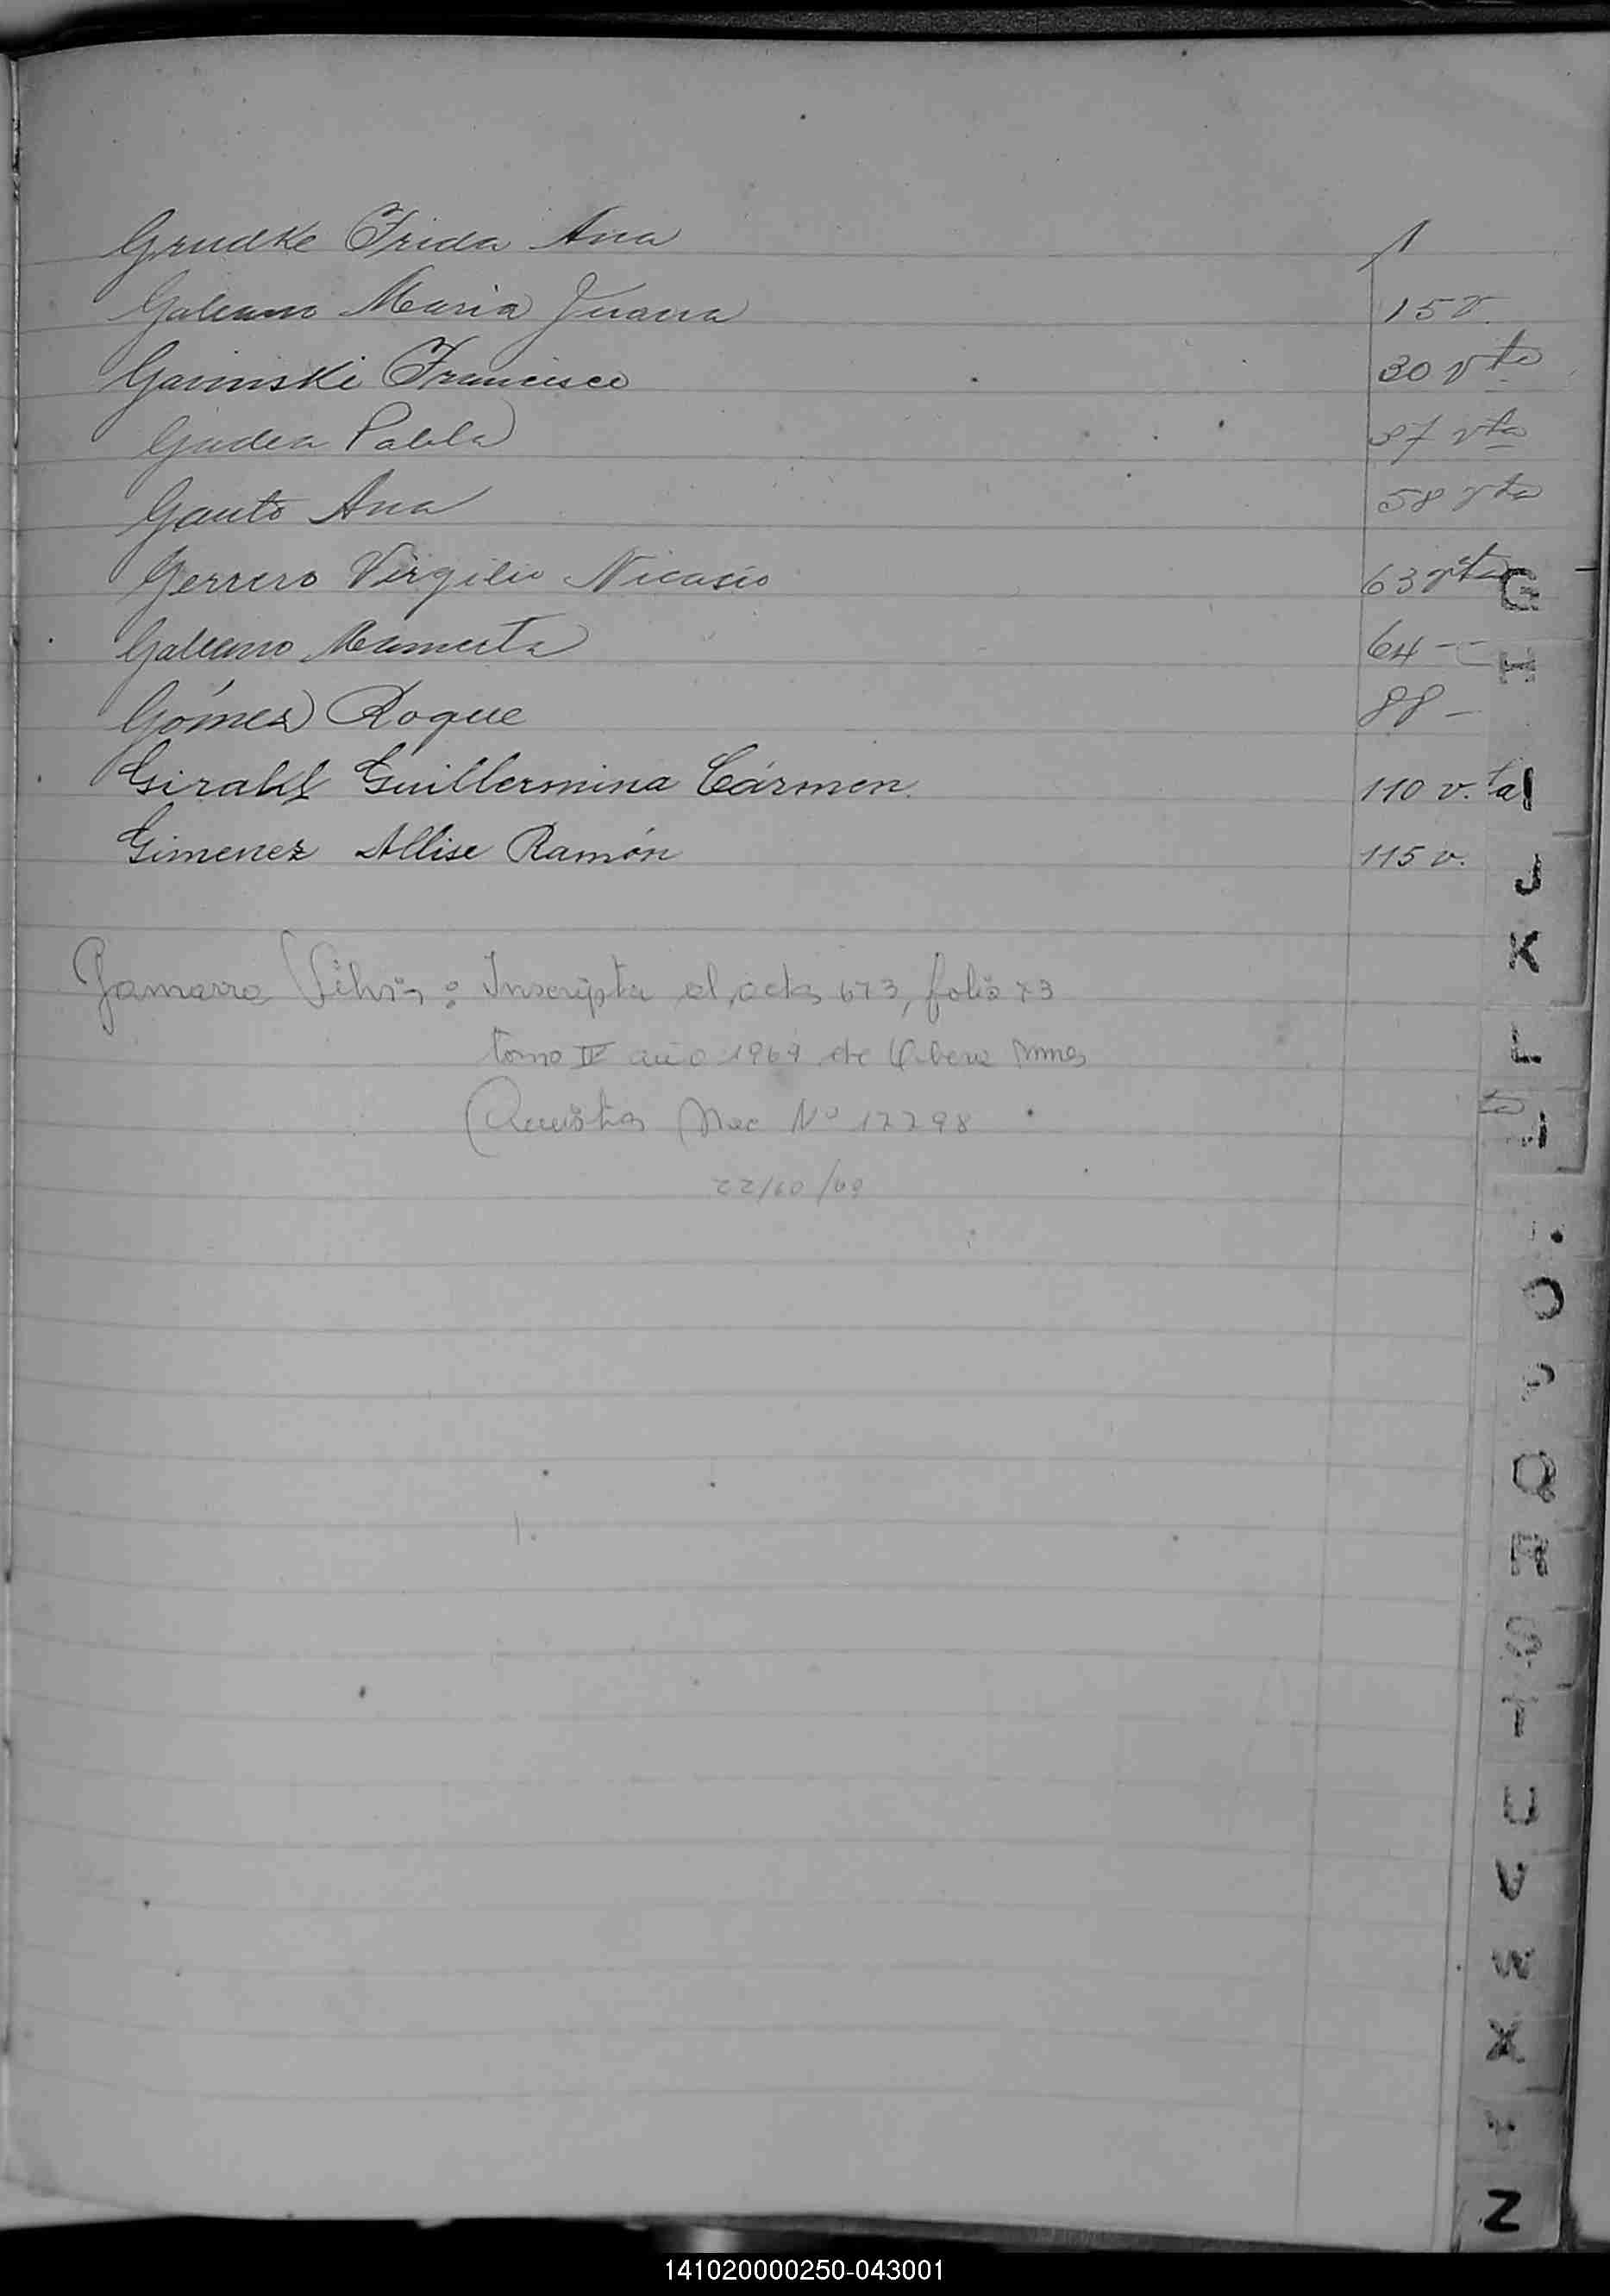 Grudke Frida Ana 1
Galeano Maria Juana 15 v.
Gavinski Francisco 30 vta
Gadea Pabla 37 vta
Gauto Ana 58 vta
Gerrero Virgilio Nicasio 63 vta
G
Galeano Mamerta 64 -
H
Gómez Roque 88 -
Girahl Guillermina Cármen. 110 v. ta
I
Gimenez Allise Ramón 115 v.
J
K
Gamarra Silvia: Inscripta al acta 673, folio 73
tomo IV año 1969 de
L
Nac Nº 12298
22/10/69
O
P
Q
R
S
T
U
V
W
X
Y
Z
141020000250-043001